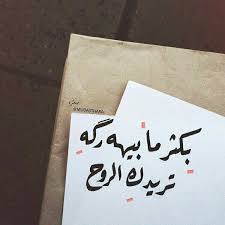 بكثر ما بيهه رگه
تريدك الروح